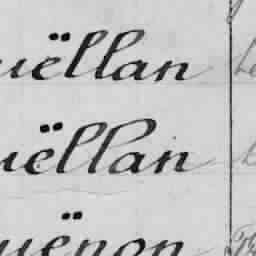 uëllan
uëllan
uënon